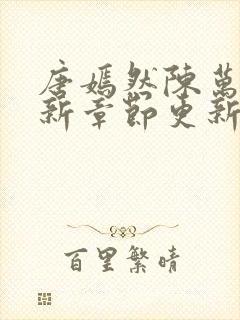 唐嫣然陳萬
新章節更新
百里繁晴